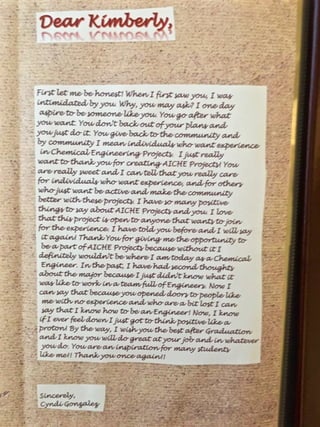 Dear Kimberly,
First let me be honest! When I first saw you, I was
intimidated by you. Why, you may ask? I one day
aspire to be someone like you. You go after what
you want. You don't back out of your plans and
you just do it. You give back to the community and
by community I mean individuals who want experience
in Chemical Engineering Projects. I just really
want to thank you for creating AICHE Projects! You
are really sweet and I can tell that you really care
for individuals who want experience, and for others
who just want be active and make the community
better with these projects. I have so many positive
things to say about AICHE Projects and you. I love
that this project is open to anyone that wants to join
for the experience. I have told you before and I will say
it again! Thank You for giving me the opportunity to
be a part of AICHE Projects because without it I
definitely wouldn't be where I am today as a Chemical
Engineer. In the past, I have had second thoughts
about the major because I just didn't know what it
was like to work in a team full of Engineers. Now I
can say that because you opened doors to people like
me with no experience and who are a bit lost I can
say that I know how to be an Engineer! Now, I know
if I ever feel down I just got to think positive like a
proton! By the way, I wish you the best after Graduation
and I know you will do great at your job and in whatever
you do. You are an inspiration for many students
like me!! Thank you once again!!
Sincerely,
Cyndi Gonzalez